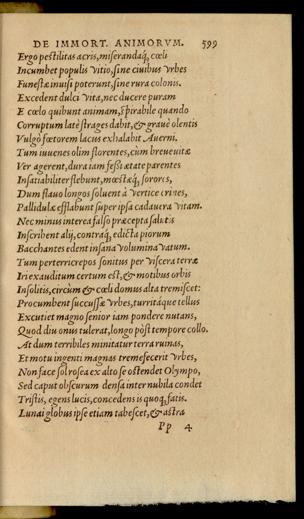 DE IMMORT. ANIMORVM. 599
Ergo pestilitas acris, miserandaq́; cœli
Incumbet populis vitio, sine ciuibus vrbes
Funestæ inuisi poterunt, sine rura colonis.
Excedent dulci vita, nec ducere puram
E cœlo quibunt animam, spirabile quando
Corruptum latè strages dabit, & grauè olentis
Vulgò fœtorem lacus exhalabit Auerni.
Tum iuuenes olim florentes, cùm breue vitæ
Ver agerent, dura iam fessi ætate parentes
Insatiabiliter flebunt, mœstæq́; sorores,
Dum flauo longos soluent à vertice crines,
Pallidulæ efflabunt super ipsa cadauera vitam.
Nec minus interea falso præcepta salutis
Inscribent alij, contraq́; edicta piorum
Bacchantes edent insana volumina vatum.
Tum perterricrepos sonitus per viscera terræ
Iri exauditum certum est, & motibus orbis
Insolitis, circùm & cœli domus alta tremiscet:
Procumbent succussæ vrbes, turritáque tellus
Excutiet magno senior iam pondere nutans,
Quod diu onus tulerat, longo pòst tempore collo.
At dum terribiles minitatur terra ruinas,
Et motu ingenti magnas tremefecerit vrbes,
Non face sol rosea ex alto se ostendet Olympo,
Sed caput obscurum densa inter nubila condet
Tristis, egens lucis, concedens is quoq́; fatis.
Lunai globus ipse etiam tabescet, & astra
Pp 4